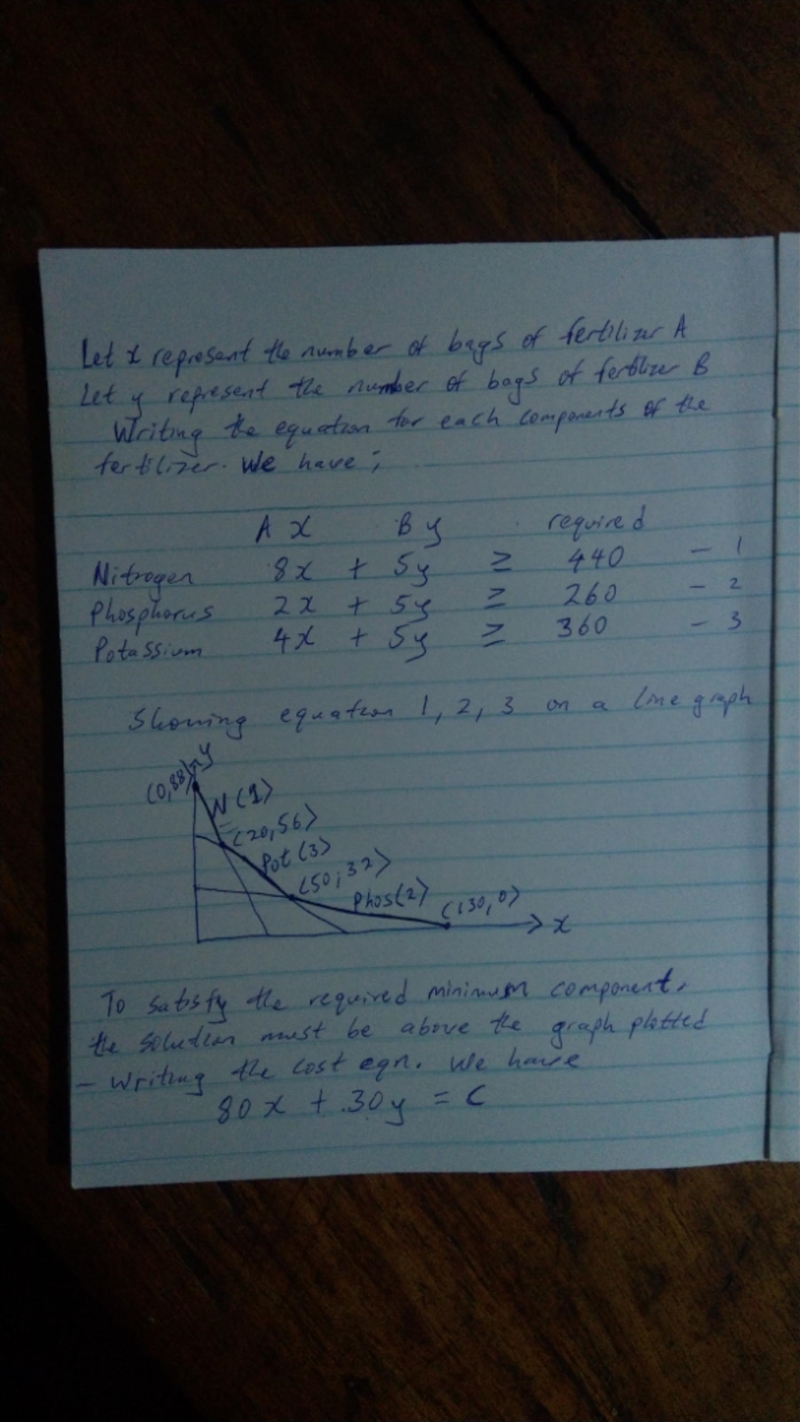 Let x represent the number of bags of fertilizer A
Let y represent the number of bags of fertilizer B
Writing the equation for each components of the
fertilizer. We have;
A x B y required
Nitrogen 8x + 5y ≥ 440 - 1
Phosphorus 2x + 5y ≥ 260 - 2
Potassium 4x + 5y ≥ 360 - 3
Showing equation 1, 2, 3 on a line graph
y
(0,88)
N(1)
(20,56)
Pot(3)
(50,32)
Phos(2)
(130,0)
x
To satisfy the required minimum component,
the solution must be above the graph plotted
- Writing the cost eqn. We have
80x + 30y = C